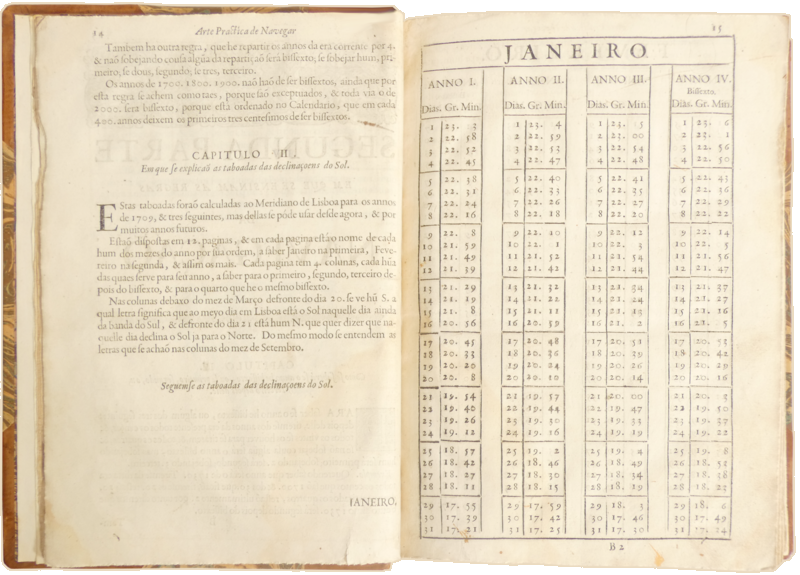 14 Arte Practica de Navegar
Tambem ha outra regra, que he repartir os annos da era corrente por 4.
& naõ sobejando cousa algũa da repartiçaõ será bissexto, se sobejar hum, pri-
meiro, se dous, segundo, se tres, terceiro.
Os annos de 1700. 1800. 1900. naõ haõ de ser bissextos, ainda que por
esta regra se achem como taes, porque saõ exceptuados, & toda via o de
2000. será bissexto, porque está ordenado no Calendario, que em cada
400. annos deixem os primeiros tres centesimos de ser bissextos.
CAPITULO II.
Em que se explicaõ as taboadas das declinaçoens do Sol.
EStas taboadas foraõ calculadas ao Meridiano de Lisboa para os annos
de 1709, & tres seguintes, mas dellas se póde usar desde agora, & por
muitos annos futuros.
Estaõ dispostas em 12. paginas, & em cada pagina está o nome de cada
hum dos mezes do anno por sua ordem, a saber Janeiro na primeira, Feve-
reiro na segunda, & assim os mais. Cada pagina tem 4. colunas, cada hũa
das quaes serve para seu anno, a saber para o primeiro, segundo, terceiro de-
pois do bissexto, & para o quarto que he o mesmo bissexto.
Nas colunas debaxo do mez de Março defronte do dia 20. se ve hũ S. a
qual letra significa que ao meyo dia em Lisboa está o Sol naquelle dia ainda
da banda do Sul, & defronte do dia 21 está hum N. que quer dizer que na-
quelle dia declina o Sol ja para o Norte. Do mesmo modo se entendem as
letras que se achaõ nas colunas do mez de Setembro.
Seguemse as taboadas das declinaçoens do Sol.
JANEIRO,
15
JANEIRO
ANNO I. ANNO II. ANNO III. ANNO IV.
Bissexto.
Dias. Gr. Min. Dias. Gr. Min. Dias. Gr. Min. Dias. Gr. Min.
1 23. 3 1 23. 4 1 23. 5 1 23. 6
2 22. 58 2 22. 59 2 23. 00 2 23. 1
3 22. 52 3 22. 53 3 22. 54 3 22. 56
4 22. 45 4 22. 47 4 22. 48 4 22. 50
5 22. 38 5 22. 40 5 22. 41 5 22. 45
6 22. 31 6 22. 33 6 22. 35 6 22. 36
7 22. 24 7 22. 26 7 22. 27 7 22. 29
8 22. 16 8 22. 18 8 22. 20 8 22. 22
9 22. 8 9 22. 10 9 22. 12 9 22. 14
10 21. 59 10 22. 1 10 22. 3 10 22. 5
11 21. 49 11 21. 52 11 21. 54 11 21. 56
12 21. 39 12 21. 42 12 21. 44 12 21. 47
13 21. 29 13 21. 32 13 21. 34 13 21. 37
14 21. 19 14 21. 22 14 21. 24 14 21. 27
15 21. 8 15 21. 11 15 21. 13 15 21. 16
16 20. 56 16 20. 59 16 21. 2 16 21. 5
17 20. 45 17 20. 48 17 20. 51 17 20. 53
18 20. 33 18 20. 36 18 20. 39 18 20. 42
19 20. 20 19 20. 24 19 20. 26 19 20. 29
20 20. 8 20 20. 10 20 20. 14 20 20. 16
21 19. 54 21 19. 57 21 20. 00 21 20. 3
22 19. 40 22 19. 44 22 19. 47 22 19. 50
23 19. 26 23 19. 30 23 19. 33 23 19. 37
24 19. 12 24 19. 16 24 19. 19 24 19. 22
25 18. 57 25 19. 2 25 19. 4 25 19. 8
26 18. 42 26 18. 46 26 18. 49 26 18. 53
27 18. 27 27 18. 30 27 18. 34 27 18. 38
28 18. 11 28 18. 15 28 18. 19 28 18. 23
29 17. 55 29 17. 59 29 18. 3 29 18. 6
30 17. 39 30 17. 42 30 17. 46 30 17. 49
31 17. 21 31 17. 25 31 17. 30 31 17. 34
B 2